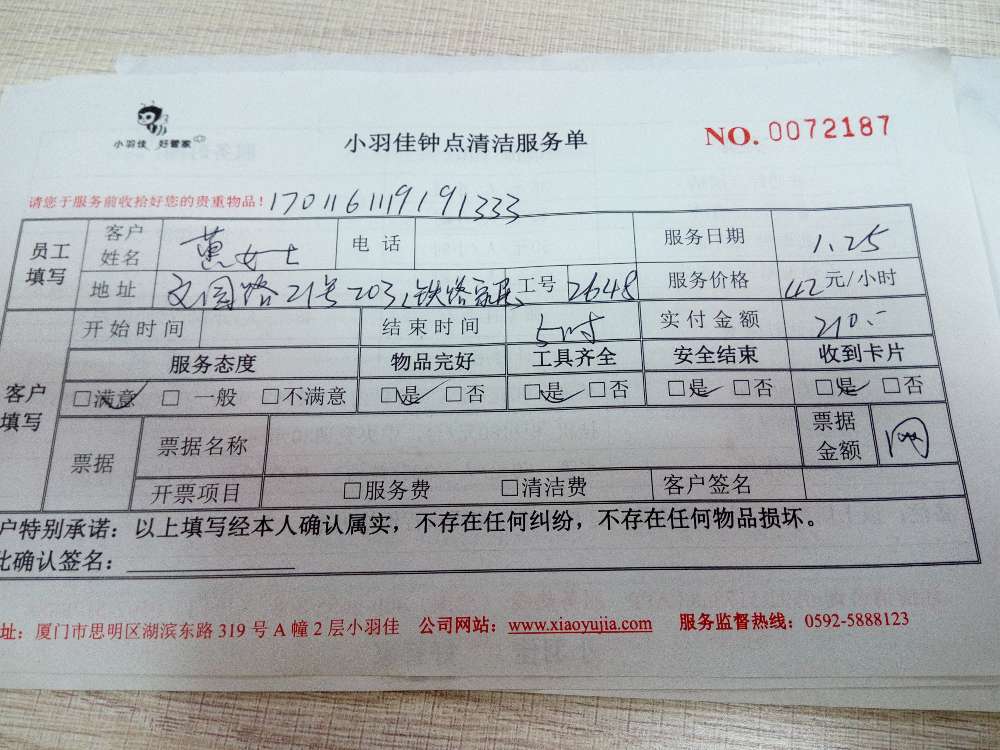 小羽佳 好管家
小羽佳钟点清洁服务单
NO. 0072187
请您于服务前收拾好您的贵重物品！ 1701161119191333
员工填写 客户姓名 女士 电话 服务日期 1.25
地址 文园路21号203,铁路 工号 2648 服务价格 42元/小时
客户填写 开始时间 结束时间 5时 实付金额 210.-
服务态度 物品完好 工具齐全 安全结束 收到卡片
□满意 □ 一般 □不满意 □是 □否 □是 □否 □是 □否 □是 □否
票据 票据名称 票据金额 网
开票项目 □服务费 □清洁费 客户签名
户特别承诺：以上填写经本人确认属实，不存在任何纠纷，不存在任何物品损坏。
此确认签名：
址：厦门市思明区湖滨东路 319 号 A 幢 2 层小羽佳 公司网站：www.xiaoyujia.com 服务监督热线：0592-5888123